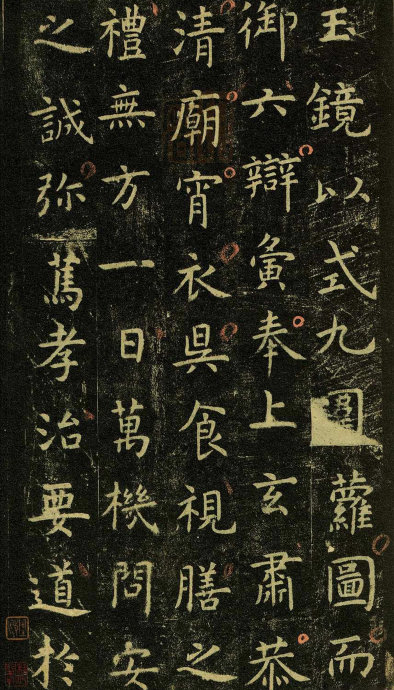 玉鏡以式九圍蘿圖而
御六辯寅奉上玄肅恭
清廟宵衣昃食視膳之
禮無方一日萬機問安
之誠弥篤孝治要道於